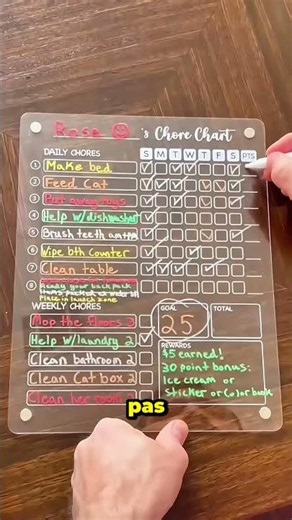 Rose 's Chore Chart
DAILY CHORES S M T W T F S PTS
1 Make bed
2 Feed Cat
3 Put away toys
4 Help w/dishwasher
5 Brush teeth am+pm
6 Wipe bth counter
7 Clean table
8 Ready your back pack
Place in launch zone
WEEKLY CHORES
Mop the floors 3
Help w/laundry 2
Clean bathroom 2
Clean Cat box 2
Clean her room 2
GOAL
25
TOTAL
REWARDS
$5 earned!
30 point bonus:
Ice cream or
Sticker or Color book
pas